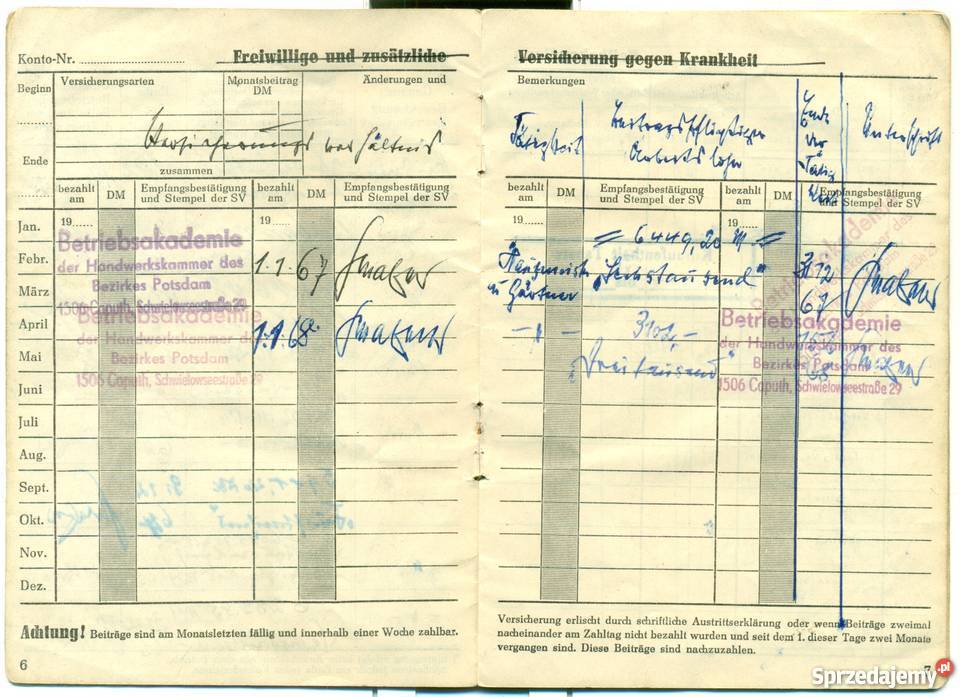 Konto-Nr. Freiwillige und zusätzliche
Beginn
Versicherungsarten
Monatsbeitrag
DM
Änderungen und
Versicherungsverhältnis
Ende
zusammen
bezahlt am DM Empfangsbestätigung und Stempel der SV bezahlt am DM Empfangsbestätigung und Stempel der SV
19...... 19......
Jan.
Febr.
März
April
Mai
Juni
Juli
Aug.
Sept.
Okt.
Nov.
Dez.
Betriebsakademie
der Handwerkskammer des
Bezirkes Potsdam
1506 Caputh, Schwielowseestraße 29
1.1.67
Betriebsakademie
der Handwerkskammer des
Bezirkes Potsdam
1506 Caputh, Schwielowseestraße 29
1.1.68
Achtung! Beiträge sind am Monatsletzten fällig und innerhalb einer Woche zahlbar.
6
Versicherung gegen Krankheit
Bemerkungen
Tätigkeit
Beitragspflichtiger
Arbeitslohn
Ende
der
Tätig
keit
Unterschrift
bezahlt am DM Empfangsbestätigung und Stempel der SV bezahlt am DM Empfangsbestätigung und Stempel der SV
19...... 19......
= 6449,20 M =
Hausmeister
u Gärtner
"Sechstausend"
31 12
67
3101,-
"Dreitausend"
68
Betriebsakademie
der Handwerkskammer des
Bezirkes Potsdam
1506 Caputh, Schwielowseestraße 29
Versicherung erlischt durch schriftliche Austrittserklärung oder wenn Beiträge zweimal
nacheinander am Zahltag nicht bezahlt wurden und seit dem 1. dieser Tage zwei Monate
vergangen sind. Diese Beiträge sind nachzuzahlen.
7
Sprzedajemy.pl